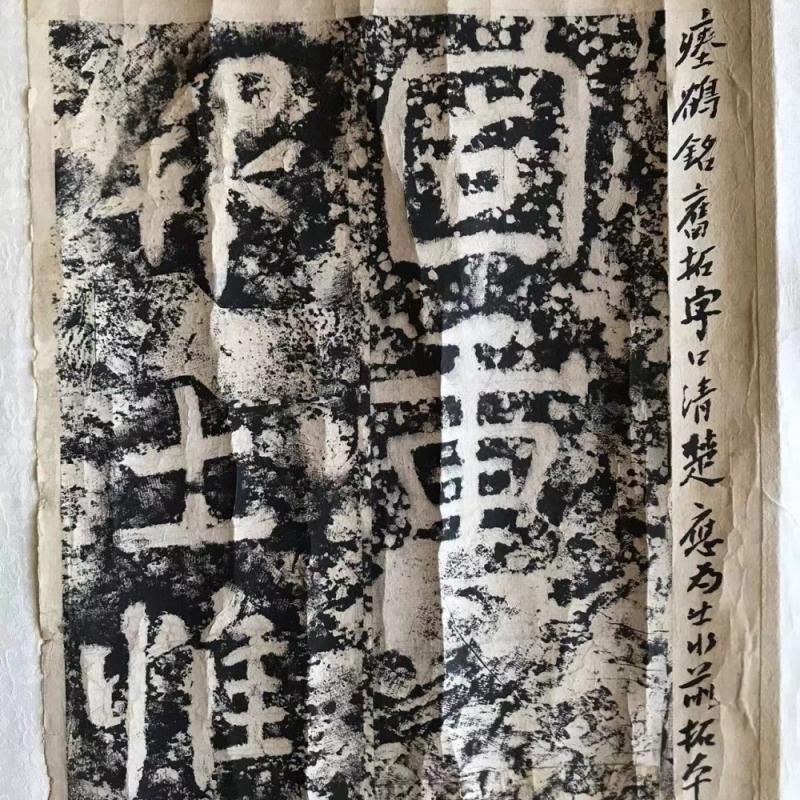 瘞鶴銘舊拓字口清楚應为出水前拓本
固重
土惟